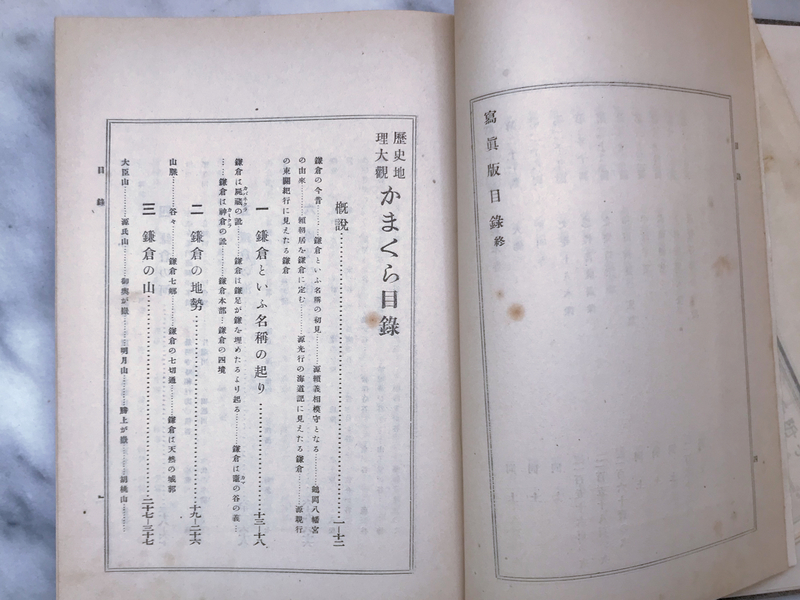 寫眞版目錄 終
歷史地理大觀 かまくら目錄
槪說……一―十二
鎌倉の今昔……鎌倉といふ名稱の初見……源賴義相模守となる……鶴岡八幡宮
の由來……賴朝居を鎌倉に定む……源光行の海道記に見えたる鎌倉……源親行
の東關紀行に見えたる鎌倉
一 鎌倉といふ名稱の起り……十三―十八
鎌倉は屍藏の說……鎌倉は鎌足が鎌を埋めたるより起る……鎌倉は竈の谷の義…
…鎌倉は神倉の說……鎌倉本部…鎌倉の四境
二 鎌倉の地勢……十九―二十六
山脈……谷々……鎌倉七鄕……鎌倉の七切通……鎌倉は天然の城郭
三 鎌倉の山……二十七―三十七
大臣山……源氏山……御嶽……明月山……勝上が嶽……胡桃山……
目錄
一